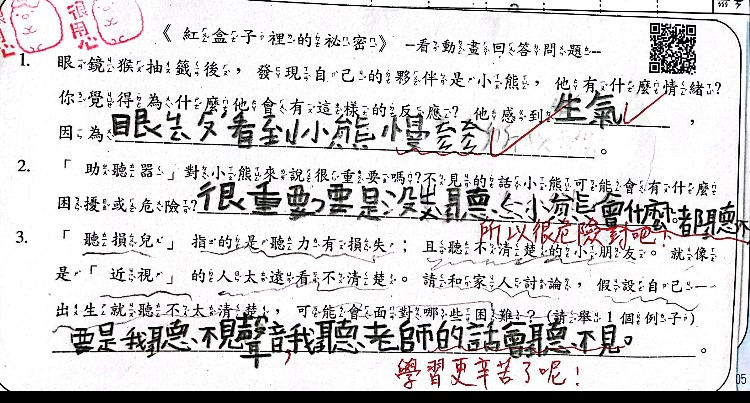 很用心
很用心
《紅盒子裡的祕密》—看動畫回答問題—
1. 眼鏡猴抽籤後，發現自己的夥伴是小熊，他有什麼情緒?
你覺得為什麼他會有這樣的反應? 他感到生氣，
因為 看到小熊慢 。
2. 「助聽器」對小熊來說很重要嗎?不見的話小熊可能會有什麼
困擾或危險? 很重要，要是沒 聽 小熊會什麼都聽不
所以很危險對吧
3. 「聽損兒」指的是聽力有損失；且聽不清楚的小朋友。就像
是「近視」的人太遠看不清楚。請和家人討論，假設自己一
出生就聽不太清楚，可能會面對哪些困難?(請舉1個例子)
要是我聽不見聲音，我聽老師的話會聽不見。
學習更辛苦了呢!
05